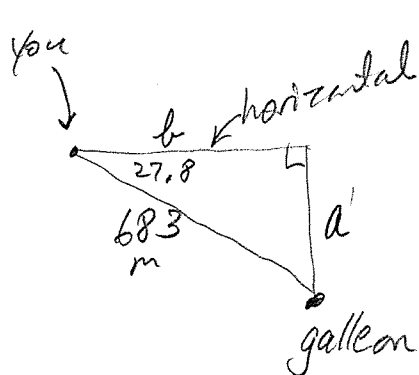 you
horizontal
b
27.8
683
m
a'
galleon